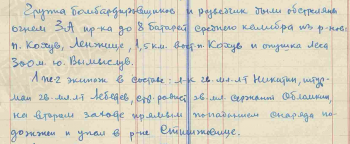 Группа бомбардировщиков и разведчик были обстреляны
огнем ЗА пр-ка до 3 батарей среднего калибра из р-нов:
п. Козув, Ленжице, 1,5 км. вост. п. Козув и опушка леса
300 м. ю. Вымыслув.
1 пе-2 экипаж в составе: л-к гв. мл. л-т Никитин, штур-
ман гв. мл. л-т Лебедев, стр. радист гв. мл. сержант Облашкин,
на втором заходе прямым попаданием снаряда по-
дожжен и упал в р-не